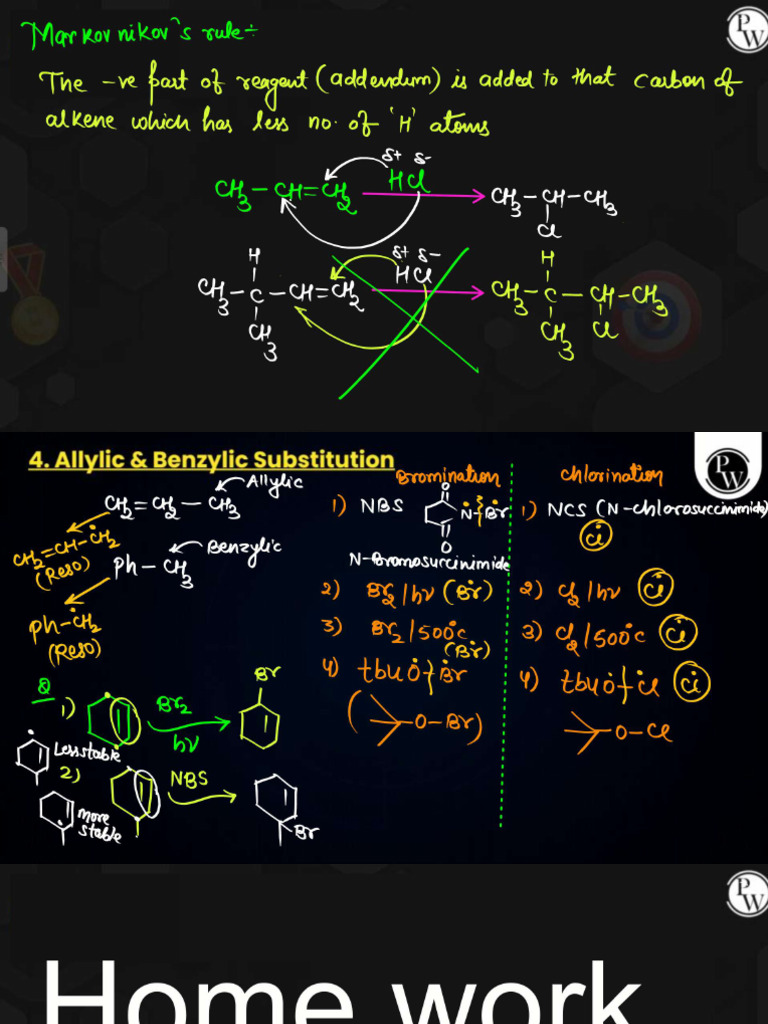 Markovnikov's rule÷
PW
The -ve part of reagent (addendum) is added to that carbon of
alkene which has less no. of 'H' atoms
δ+ δ-
CH3-CH=CH2 HCl CH3-CH-CH3
Cl
H δ+ δ- H
CH3-C-CH=CH2 HCl CH3-C-CH-CH3
CH3 CH3 Cl
4. Allylic & Benzylic Substitution
PW
Allylic
CH2=CH2-CH3
CH2=CH-ĊH2
(Reso)
Benzylic
Ph-CH3
Ph-ĊH2
(Reso)
Q
1) Br2
hν
Br
Less stable
2) NBS
more
stable
Br
Bromination
1) NBS
O
N-Br
O
N-Bromosuccinimide
2) Br2/hν (Ḃr)
3) Br2/500°c
(Ḃr)
4) tbuȮ Ḃr
(O-Br)
Chlorination
1) NCS (N-chlorosuccinimide)
Ċl
2) Cl2/hν Ċl
3) Cl2/500°c Ċl
4) tbuȮ Ċl Ċl
O-Cl
PW
Home work